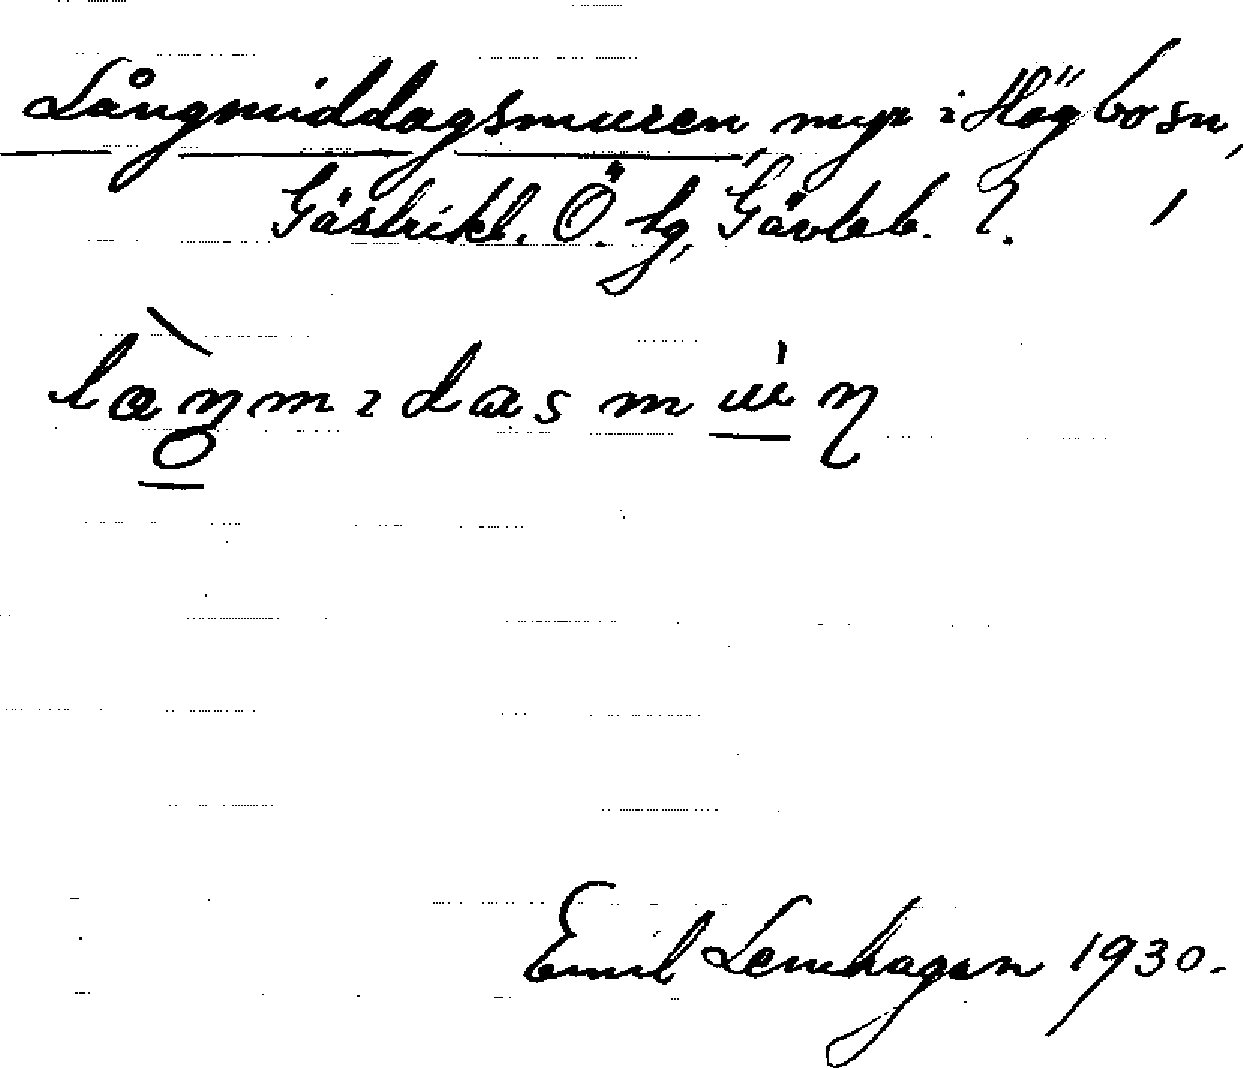 Långmiddagsmuren, myr i Högbo sn,
Gästrikl. Ö. tg, Gävleb. l.
Emil Lennhagen 1930.